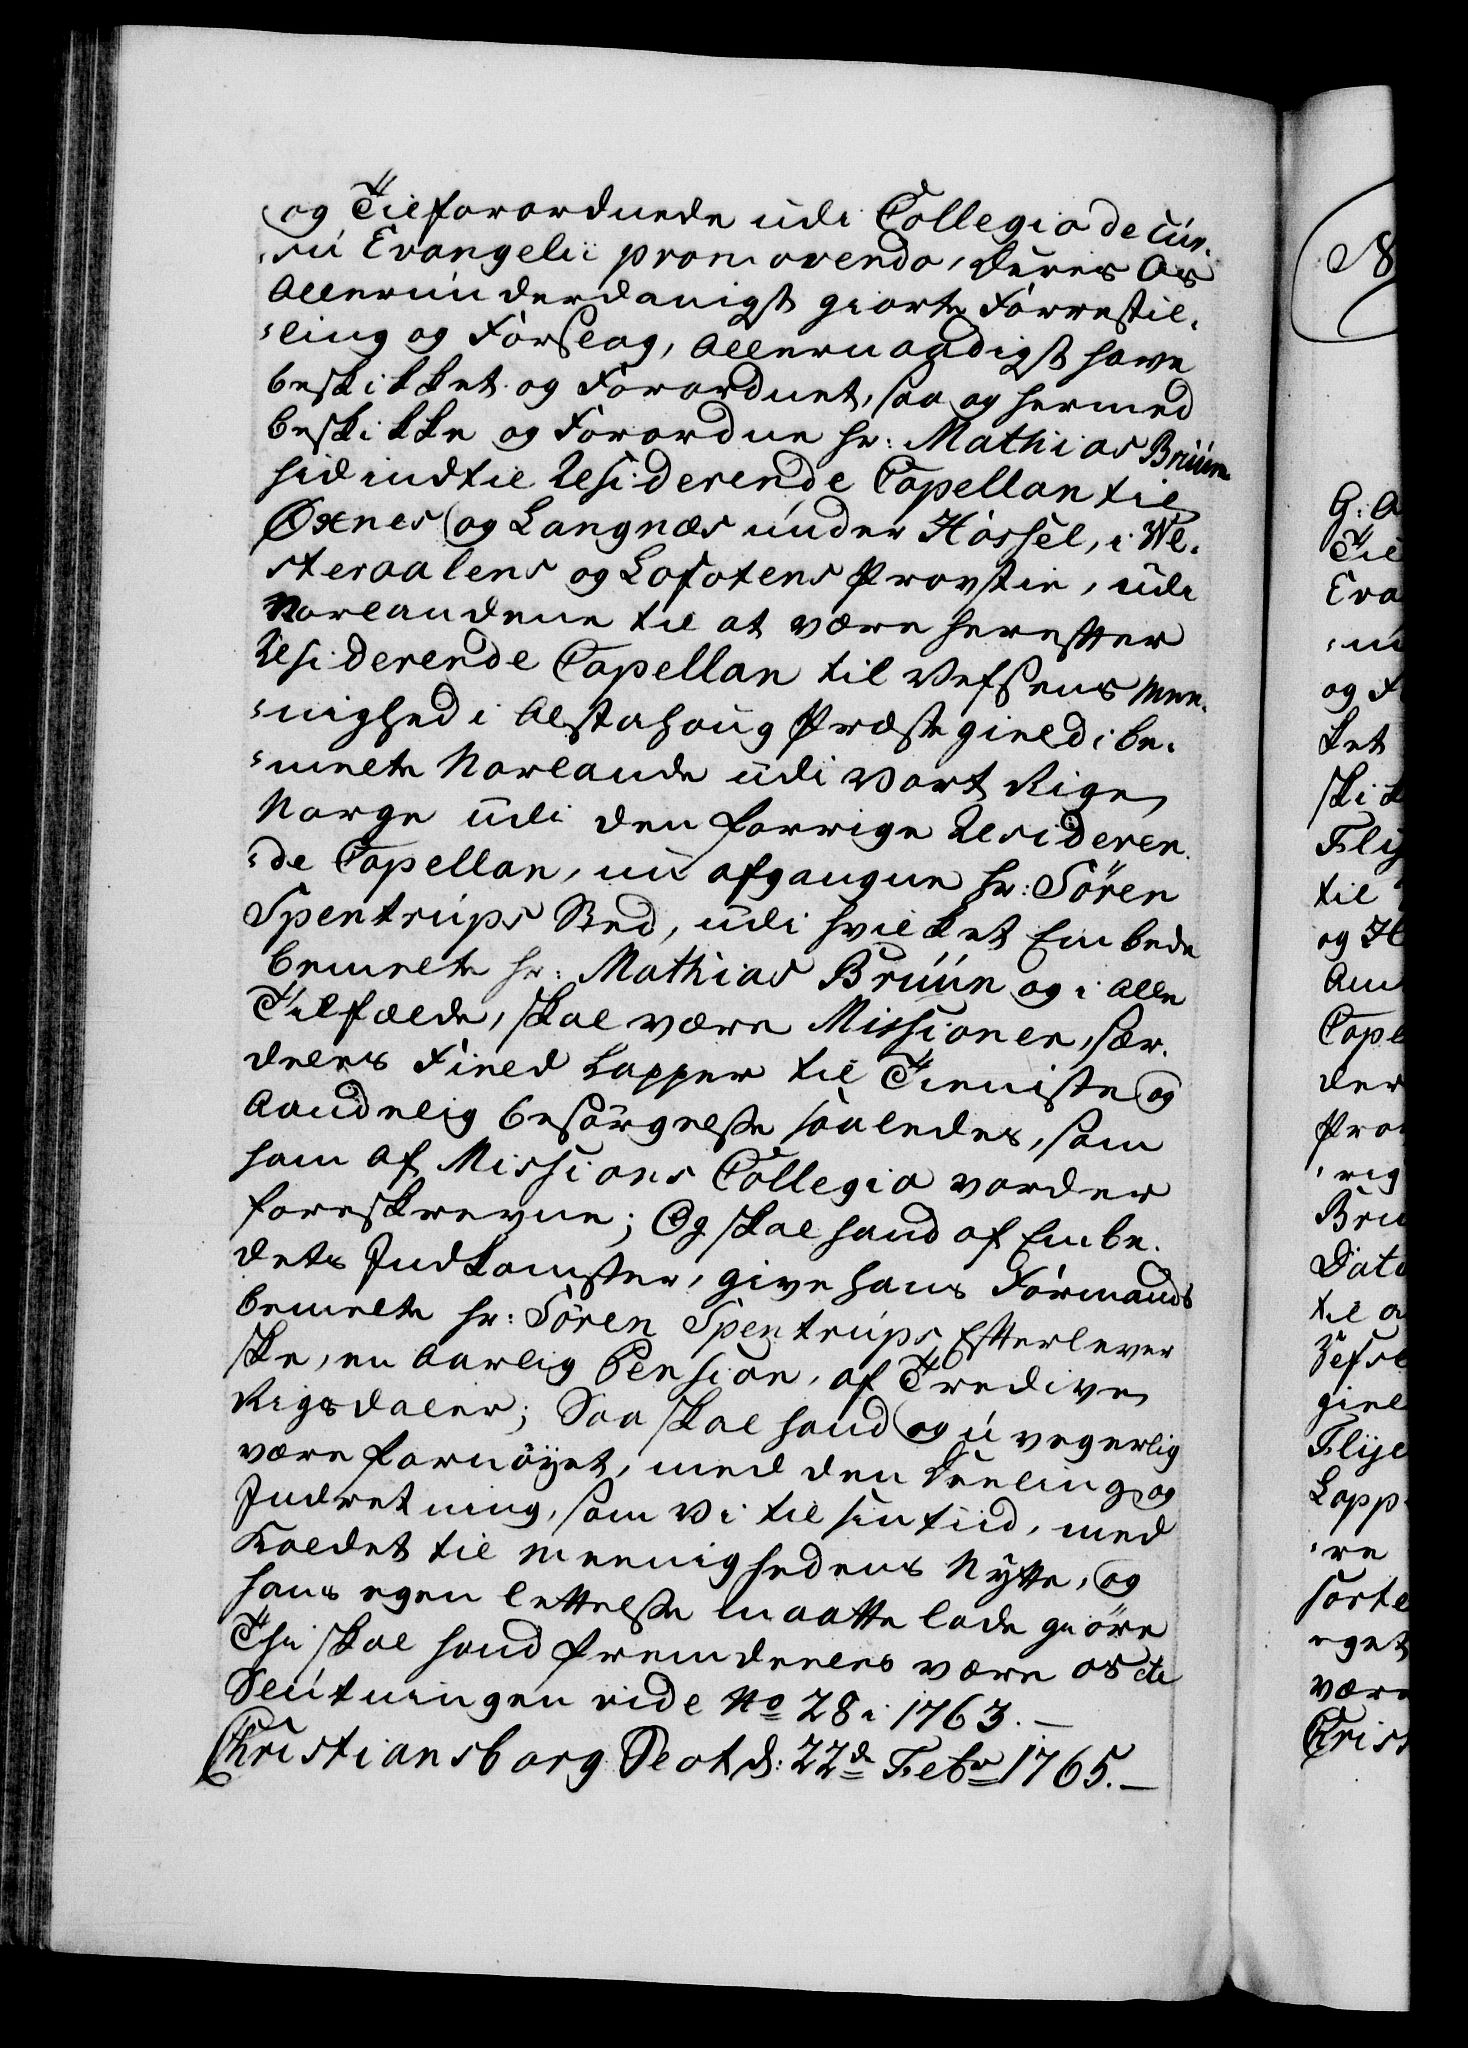 og Tilforordnede udi Collegio de cur¬
su Evangelii promovendo, deres Os
Allerunderdanigst giorte Forrestil¬
ling og Forslag, Allernaadigst have
beskikket og Forordnet, saa og hermed
beskikke og Forordne hr: Mathias Bruun
hidindtil Residerende Capellan til
Øxnes og Langnæs under Hassel, i We¬
steraalens og Lofotens Provstie, udi
Norlandene til at være herefter
Residerende Capellan til Vefsens Mee¬
nighed i Alstahoug Præstegield i be¬
meelte Norlande udi Vort Rige
Norge udi den forrige Resideren¬
de Capellan, nu afgangne hr: Sören
Spentrups Sted, udi hvilket Embede
bemeelte hr: Mathias Bruun og i Alle
Tilfælde, skal være Missionen, sær¬
deels Field Lapper til Tieniste og
Aandelig besörgelse saaledes, som
ham af Missions Collegio vorder
foreskrevne; Og skal hand af Embe¬
dets Indkomster, give hans Formands
bemeelte hr: Sören Spentrups Efterlever
ske, en Aarlig Pension, af Tredive
Rigsdaler; Saa skal hand og uvegerlig
være fornöyet, med den Deeling og
Indretning, som Vi til sin tiid, med
Kaldet til Meenighedens Nytte, og
hans egen lettelse maatte lade giöre
Thi skal hand fremdeeles være os etc
Slutningen vide No 28 i 1763.—
Christiansborg Slot d: 22de Febr 1765.—
G: A
Til
Eva
og F
ket
ski k
Fly
til
og H
Am
Cape
der
Pro
rig
Bru
Dato
til a
Vefse
giel
Flye
Lapp
re
sorte
eget
være
Christ